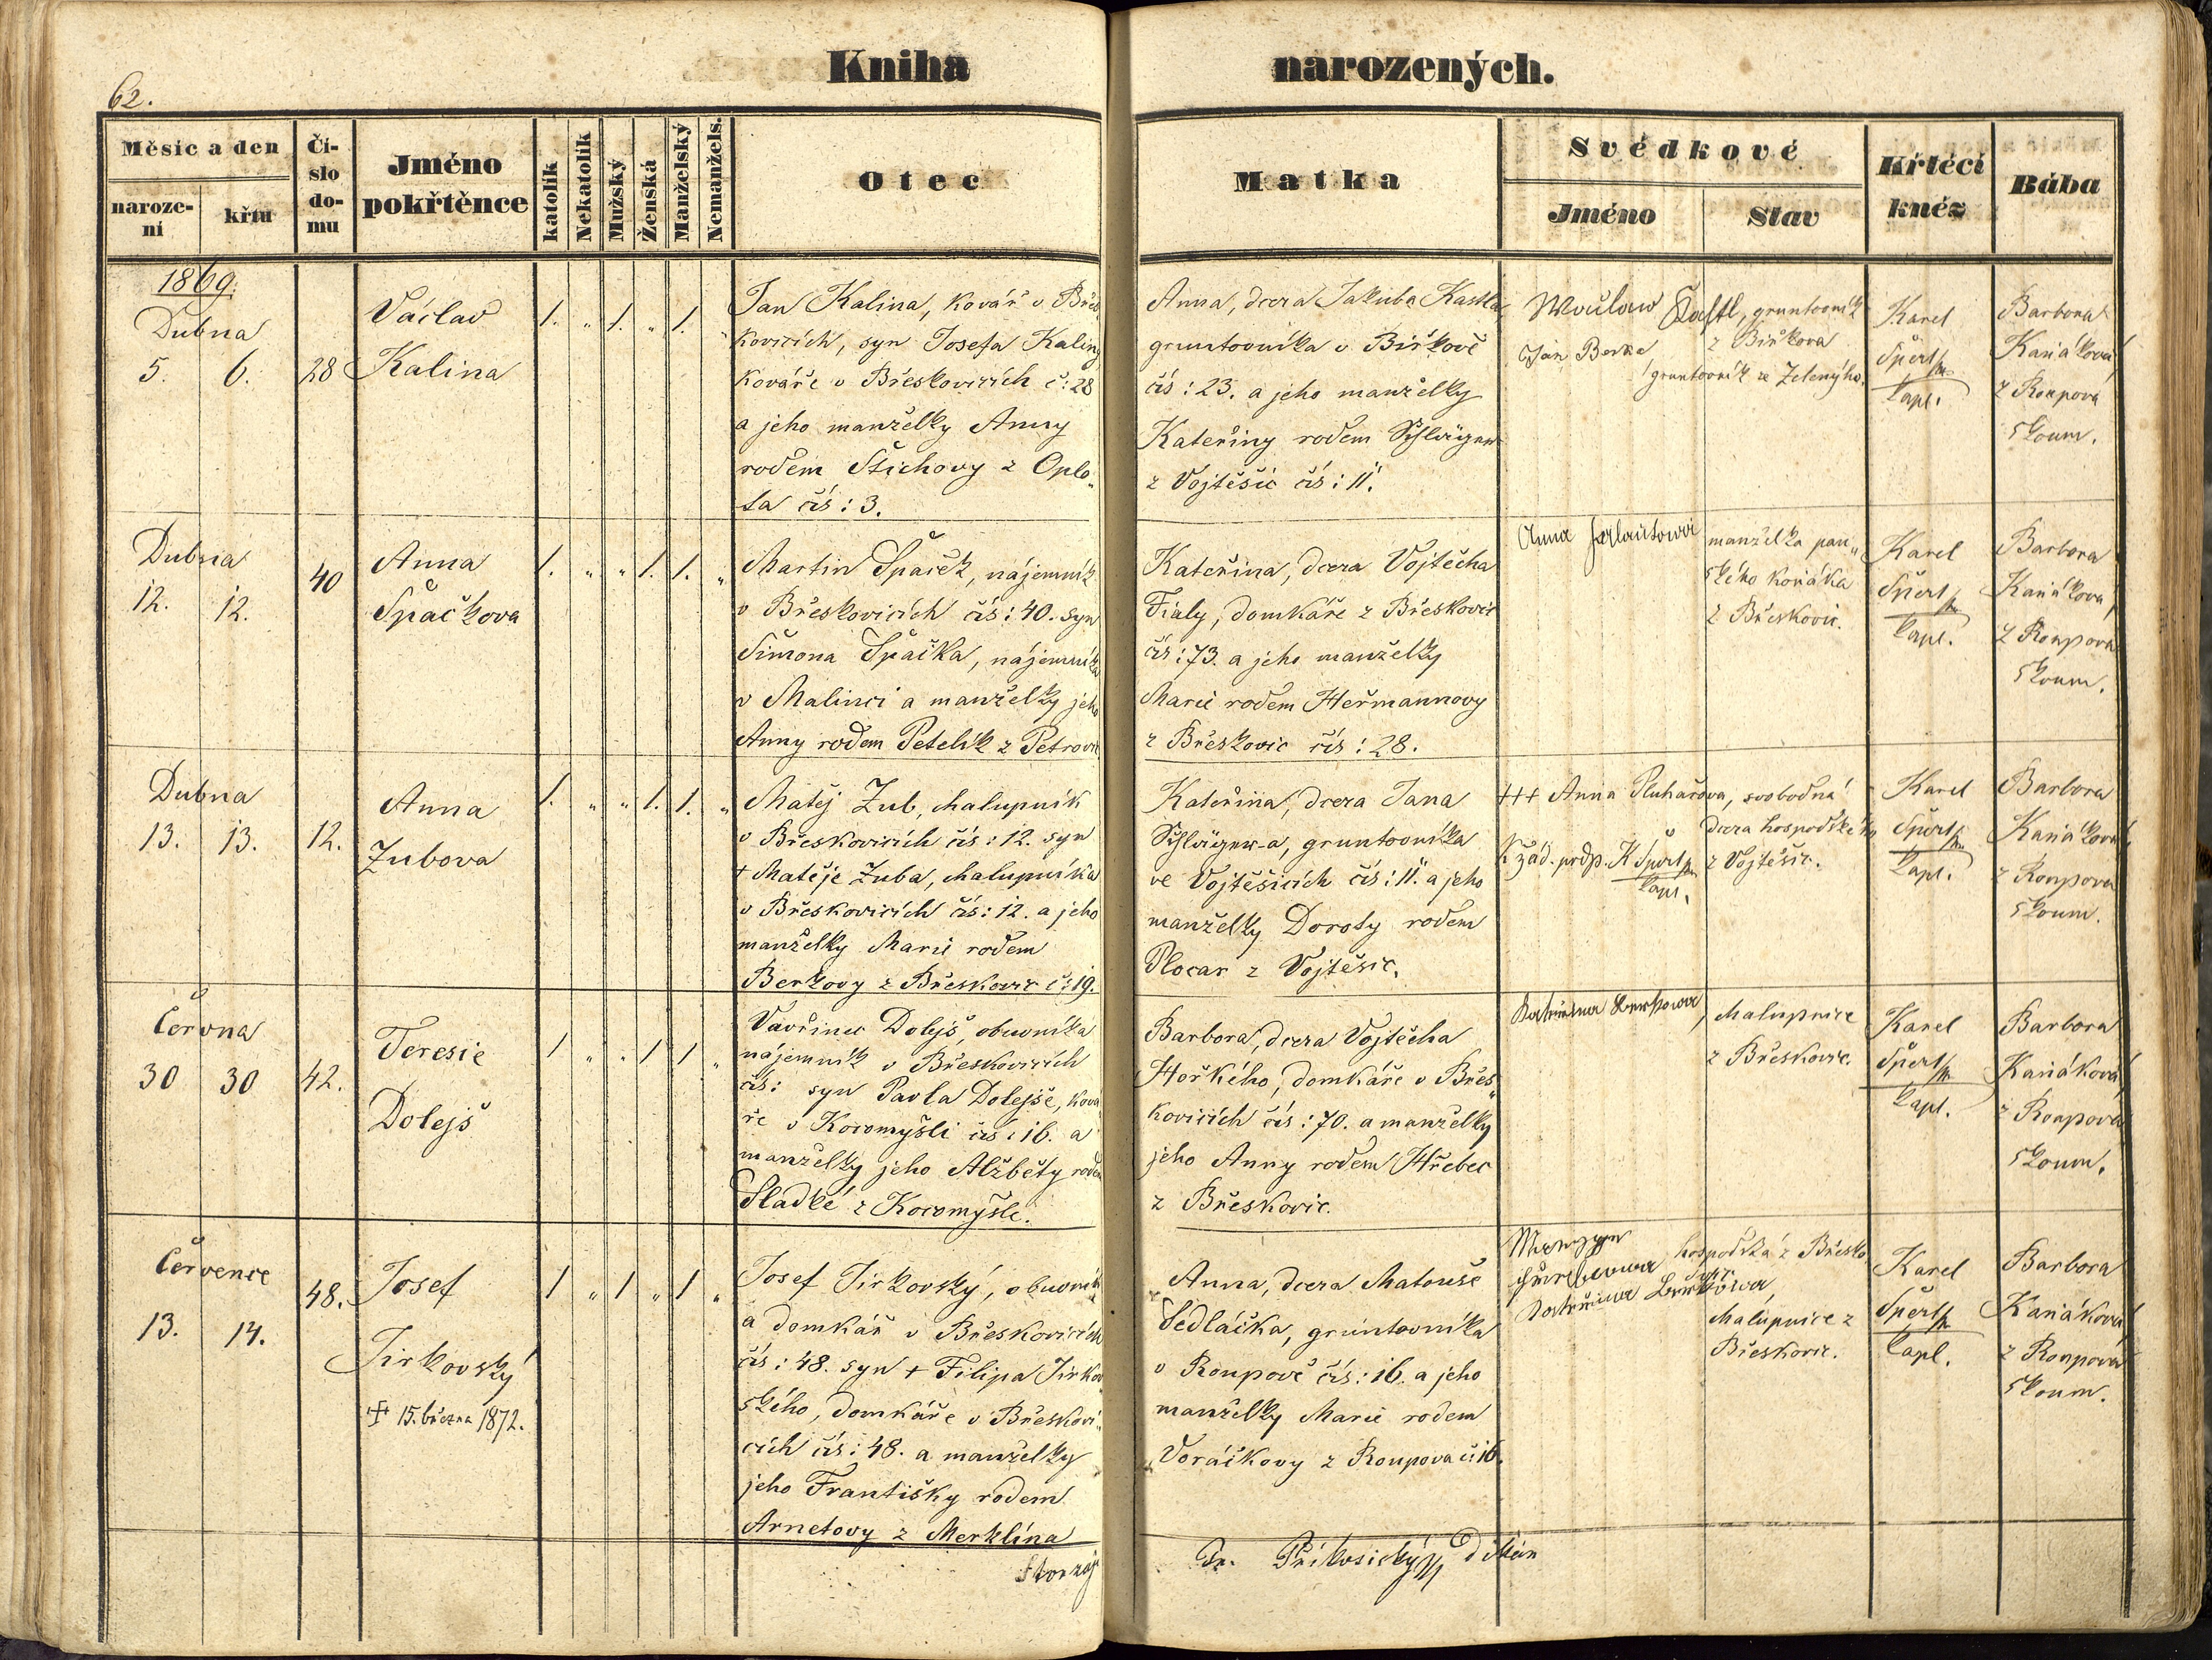 Kniha narozených.
62.
Měsíc a den
naroze-
ní
křtu
Čí-
slo
do-
mu
Jméno
pokřtěnce
katolík
Nekatolík
Mužský
Ženská
Manželský
Nemanžels.
Otec
Matka
Svědkové
Jméno
Stav
Křtěcí
kněz
Bába
1869.
Dubna
5. 6.
28
Václav
Kalina
1. „ 1. „ 1. „
Jan Kalina, kovář v Břes„
kovicích, syn Josefa Kaliny
kováře v Břeskovicích č: 28
a jeho manželky Anny
rodem Štichovy z Oplo„
ta čís: 3.
Anna, dcera Jakuba Kastla
gruntovníka v Biřkově
čís: 23. a jeho manželky
Kateřiny rodem Schlöger
z Vojtěšic čís: 11.
Kastl, gruntovník
z Biřkova
Jan Berka,
gruntovník ze Zelenýho.
Karel
Špert
kapl.
Barbora
Kaňáková
z Roupova
zkoum.
Dubna
12. 12.
40
Anna
Špačkova
1. „ „ 1. 1. „
Martin Špaček, nájemník
v Břeskovicích čís: 40. syn
Šimona Špačka, nájemníka
v Malinci a manželky jeho
Anny rodem Petelík z Petrovic
Kateřina, dcera Vojtěcha
Fialy, domkáře z Břeskovic
čís: 73. a jeho manželky
Marie rodem Heřmannovy
z Břeskovic čís: 28.
Anna
manželka pan„
ského kováka
z Břeskovic.
Karel
Špert
kapl.
Barbora
Kaňákova
z Roupova
zkoum.
Dubna
13. 13.
12.
Anna
Zubova
1. „ „ 1. 1. „
Matěj Zub, chalupník
v Břeskovicích čís: 12. syn
+ Matěje Zuba, chalupníka
v Břeskovicích čís: 12. a jeho
manželky Marie rodem
Berkovy z Břeskovic č: 19.
Kateřina, dcera Jana
Schlöger-a, gruntovníka
ve Vojtěšicích čís: 11. a jeho
manželky Doroty rodem
Plocar z Vojtěšic.
+++ Anna Pluhařova, svobodná
dcera hospodského
K žád. podp. K Špert
kapl.
z Vojtěšic.
Karel
Špert
kapl.
Barbora
Kaňáková
z Roupova
zkoum.
Června
30 30
42.
Teresie
Dolejš
1 „ „ 1 1 „
Vavřinec Dolejš, obuvníka
nájemník v Břeskovicích
čís: syn Pavla Dolejše, ková
ře v Kocomyšli čís: 16. a
manželky jeho Alžběty rodem
Sladké z Kocomyšle.
Barbora, dcera Vojtěcha
Hořkého, domkáře v Břes„
kovicích čís: 70. a manželky
jeho Anny rodem Hřebec
z Břeskovic.
Kateřina Berkowa, chalupnice
z Břeskovic.
Karel
Špert
kapl.
Barbora
Kaňáková
z Roupova
zkoum.
Července
13. 14.
48.
Josef
Jirkovský
+ 15. března 1872.
1 „ 1 „ 1 „
Josef Jirkovský, obuvník
a domkář v Břeskovicích
čís: 48. syn + Filipa Jirkov
ského, domkáře v Břeskovi„
cích čís: 48. a manželky
jeho Františky rodem
Arnetovy z Merklína
Anna, dcera Matouše
Sedláčka, gruntovníka
v Roupově čís: 16. a jeho
manželky Marie rodem
Voráčkovy z Roupova č: 16.
hospodská z Břesko
Kateřina Berkowa,
chalupnice z
Břeskovic.
Karel
Špert
kapl.
Barbora
Kaňáková
z Roupova
zkoum.
Fr. Příkosický děkan